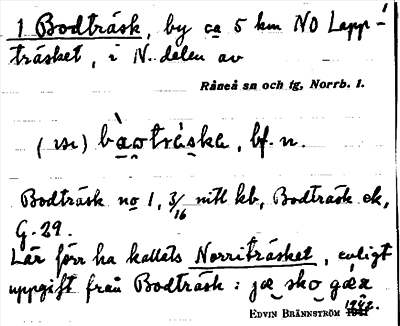 1 Bodträsk, by ca 5 km NO Lapp-
träsket, i N. delen av
Råneå sn och tg, Norrb. l.
(in) bàotráska, bf. n.
Bodträsk no 1, 3/16 mtl kb, Bodträsk ek,
G. 29.
Lär förr ha kallats Norriträsket, enligt
uppgift från Bodträsk: jɑ sko gɑ
EDVIN BRÄNNSTRÖM 1942.